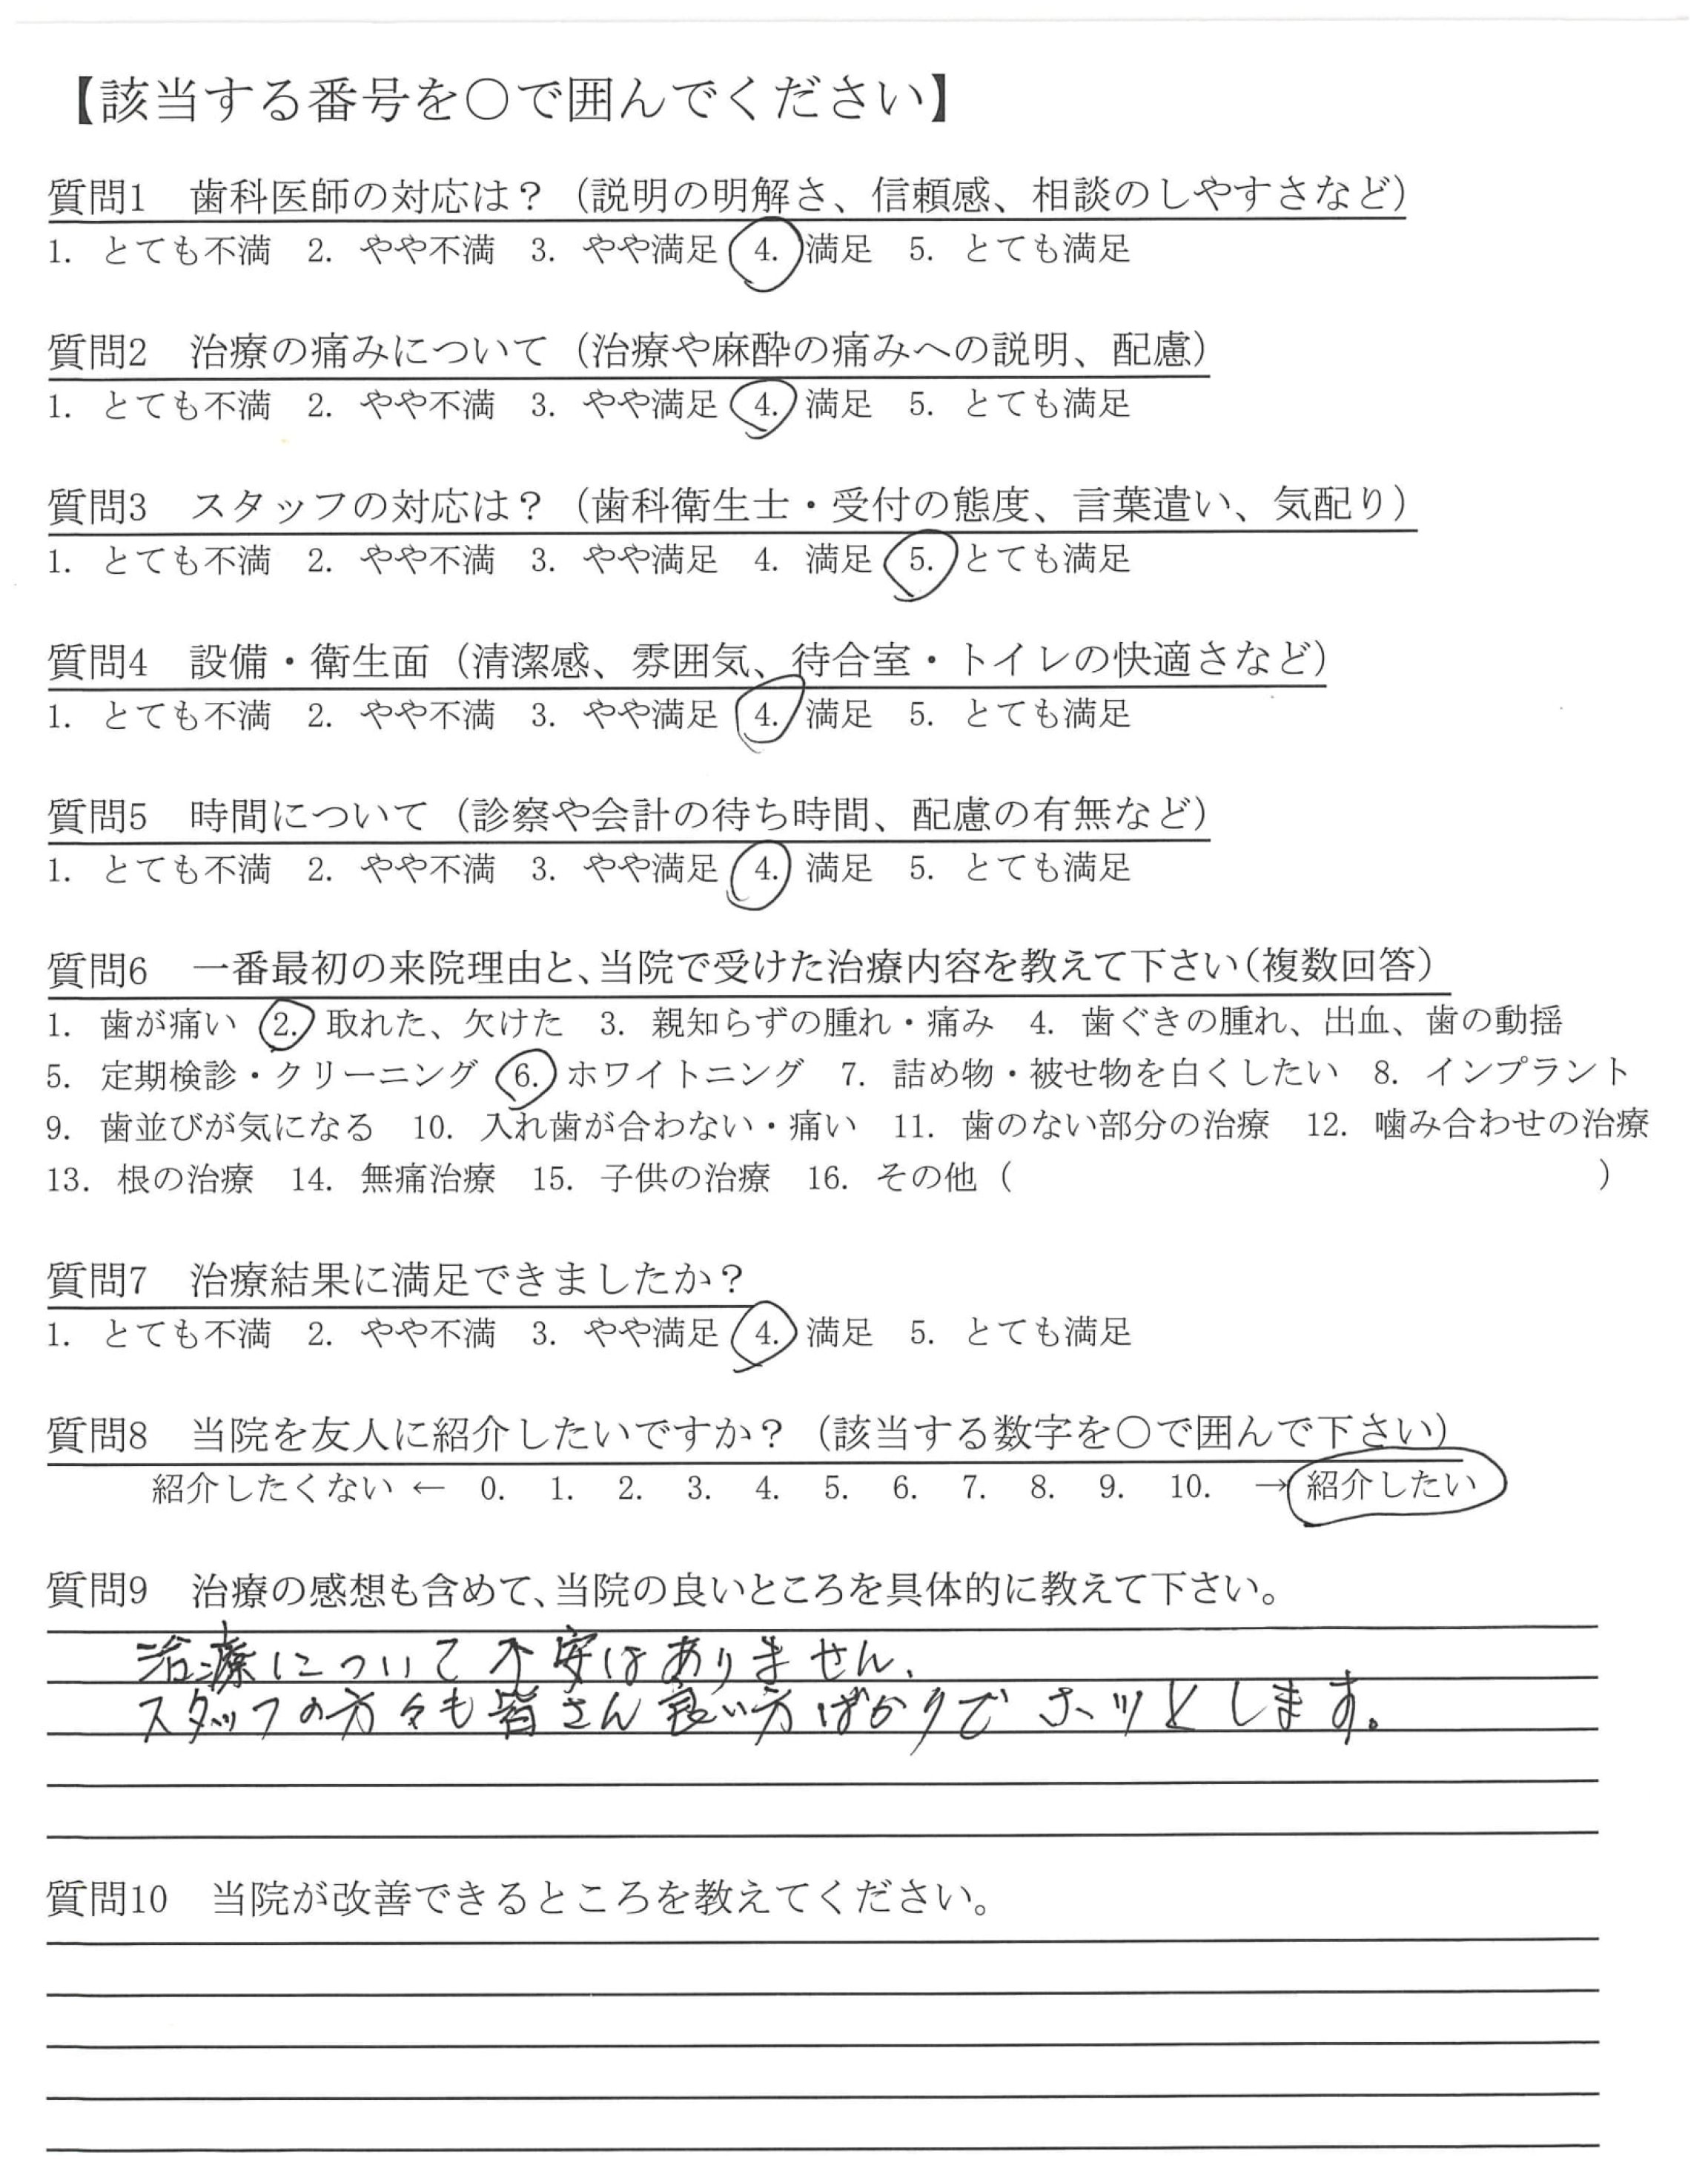 【該当する番号を○で囲んでください】
質問1　歯科医師の対応は？（説明の明解さ、信頼感、相談のしやすさなど）
1. とても不満　2. やや不満　3. やや満足　4. 満足　5. とても満足
質問2　治療の痛みについて（治療や麻酔の痛みへの説明、配慮）
1. とても不満　2. やや不満　3. やや満足　4. 満足　5. とても満足
質問3　スタッフの対応は？（歯科衛生士・受付の態度、言葉遣い、気配り）
1. とても不満　2. やや不満　3. やや満足　4. 満足　5. とても満足
質問4　設備・衛生面（清潔感、雰囲気、待合室・トイレの快適さなど）
1. とても不満　2. やや不満　3. やや満足　4. 満足　5. とても満足
質問5　時間について（診察や会計の待ち時間、配慮の有無など）
1. とても不満　2. やや不満　3. やや満足　4. 満足　5. とても満足
質問6　一番最初の来院理由と、当院で受けた治療内容を教えて下さい（複数回答）
1. 歯が痛い　2. 取れた、欠けた　3. 親知らずの腫れ・痛み　4. 歯ぐきの腫れ、出血、歯の動揺
5. 定期検診・クリーニング　6. ホワイトニング　7. 詰め物・被せ物を白くしたい　8. インプラント
9. 歯並びが気になる　10. 入れ歯が合わない・痛い　11. 歯のない部分の治療　12. 噛み合わせの治療
13. 根の治療　14. 無痛治療　15. 子供の治療　16. その他（　　　　　　　　　　）
質問7　治療結果に満足できましたか？
1. とても不満　2. やや不満　3. やや満足　4. 満足　5. とても満足
質問8　当院を友人に紹介したいですか？（該当する数字を○で囲んで下さい）
紹介したくない ←　0.　1.　2.　3.　4.　5.　6.　7.　8.　9.　10.　→ 紹介したい
質問9　治療の感想も含めて、当院の良いところを具体的に教えて下さい。
治療について不安はありません。
スタッフの方々も皆さん良い方ばかりでホッとします。
質問10　当院が改善できるところを教えてください。